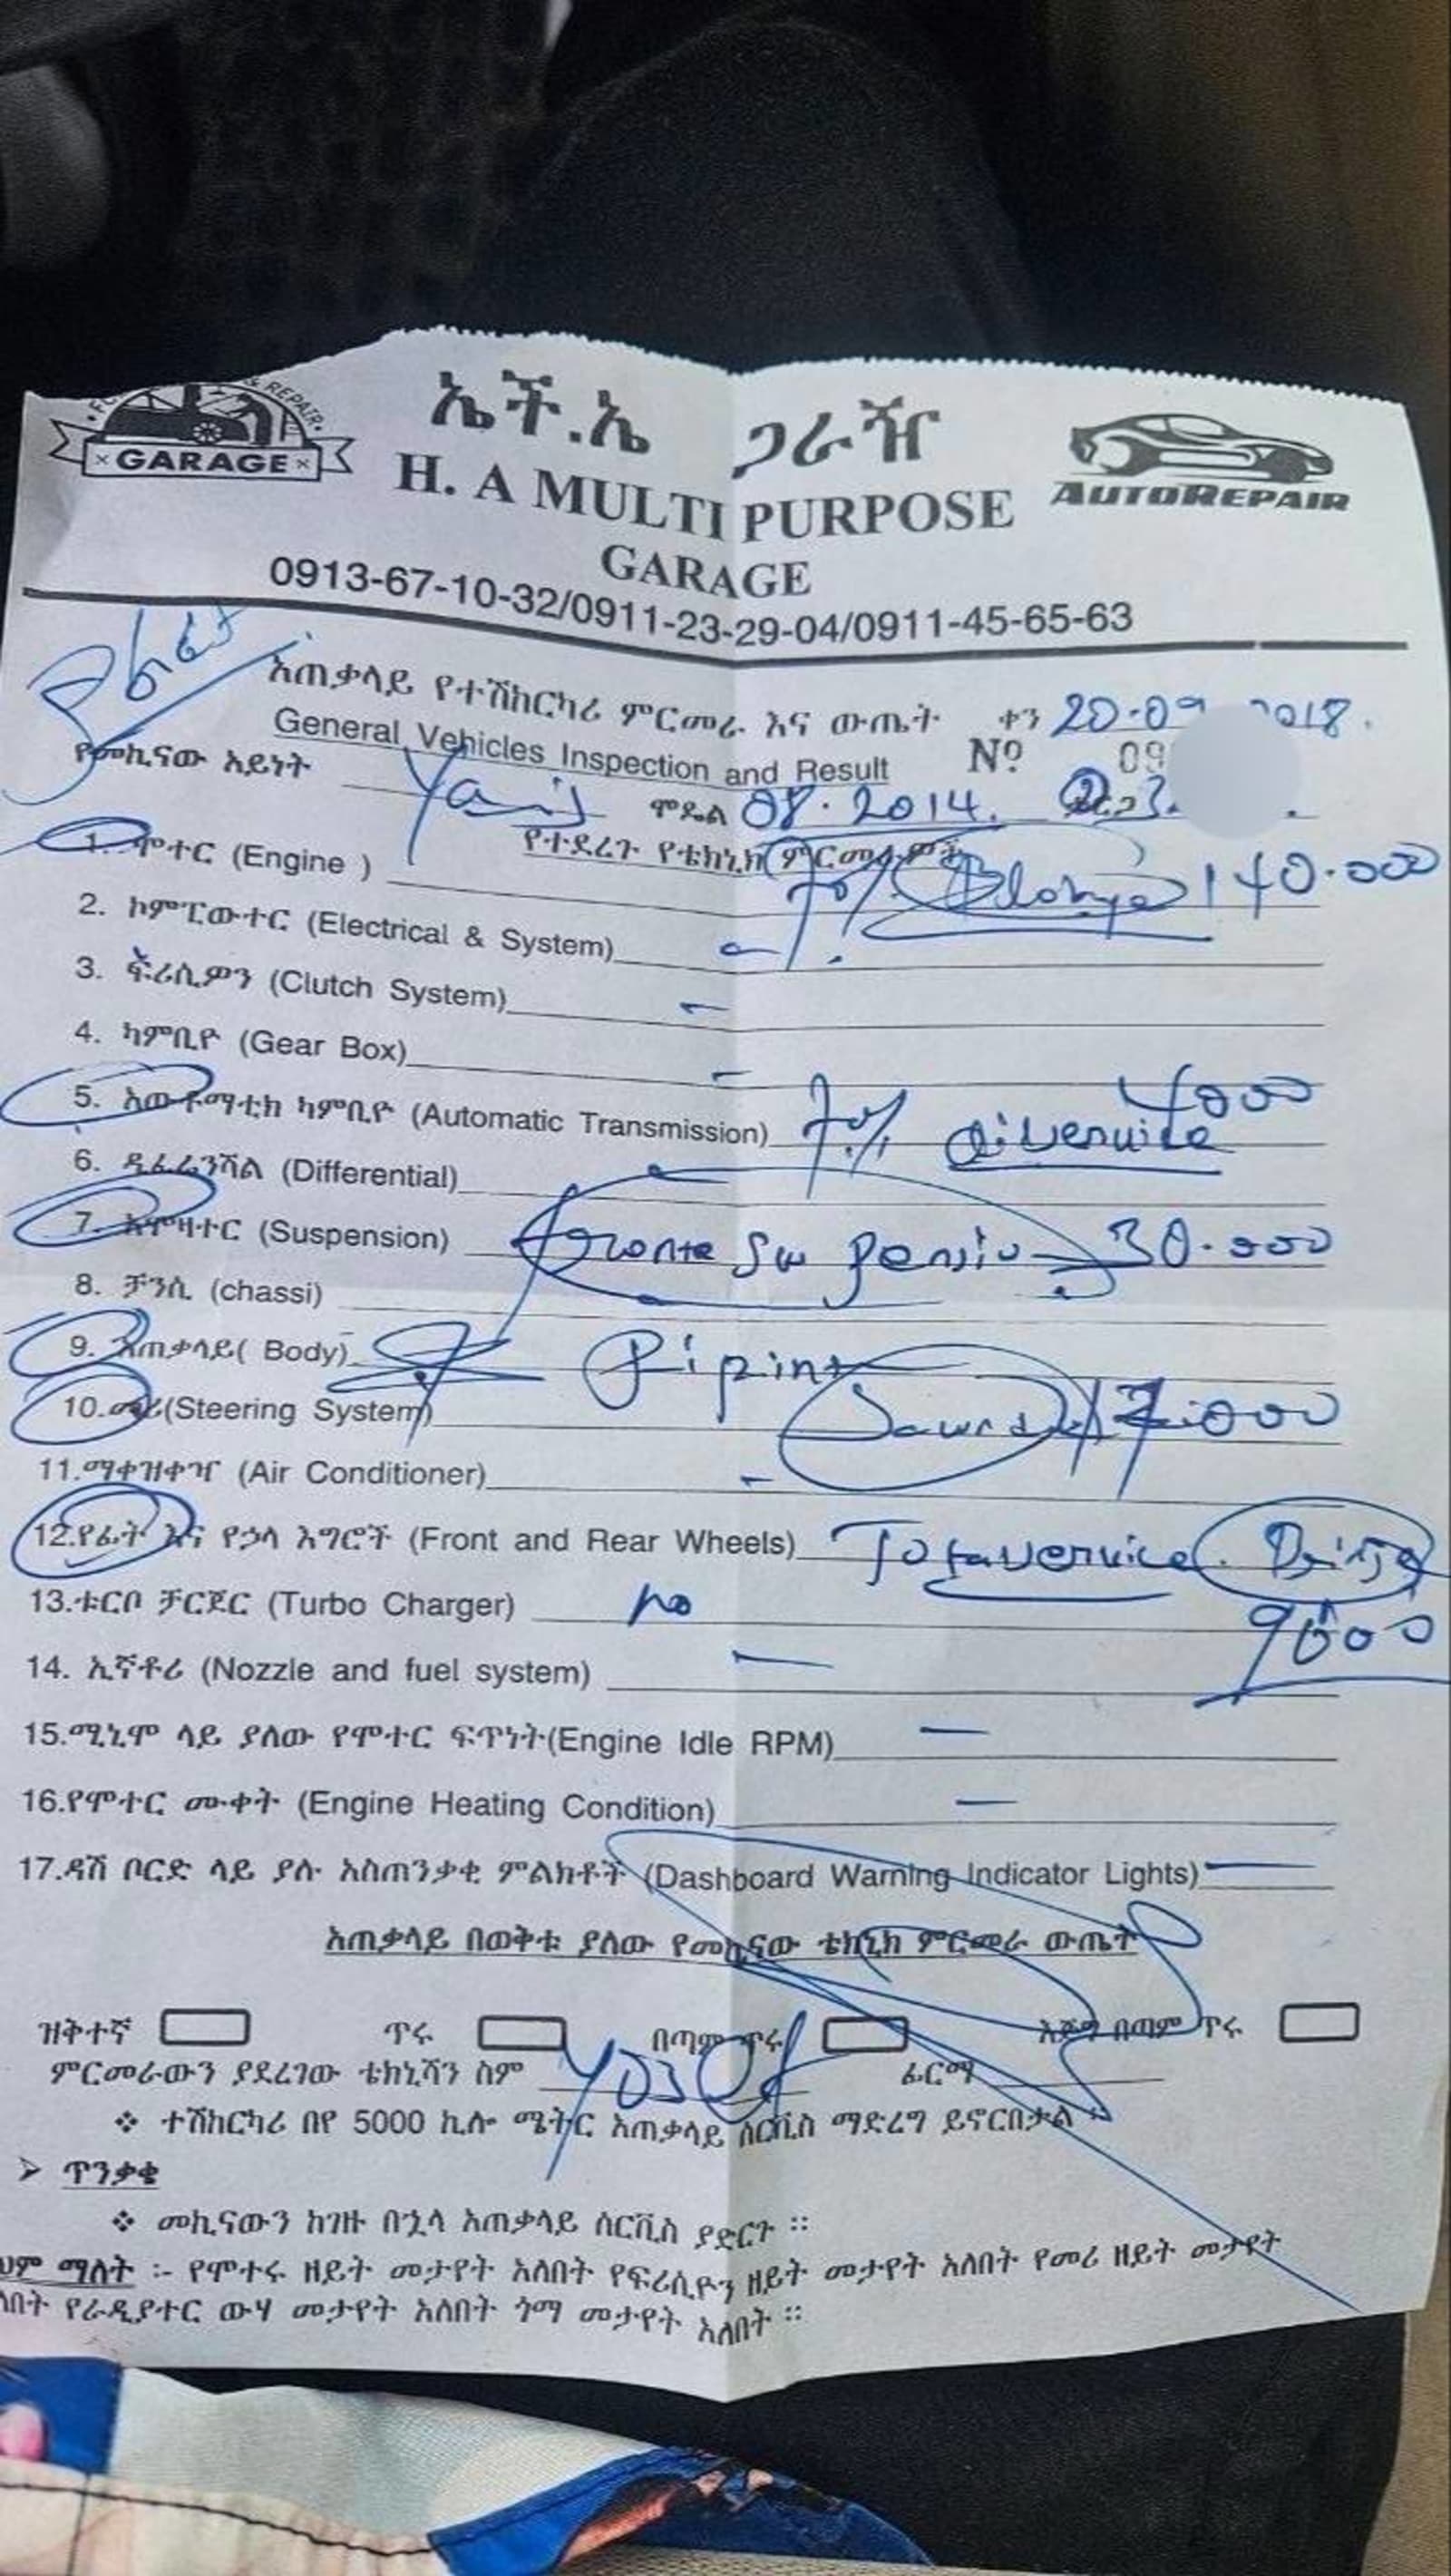 & REPAIR
GARAGE
ኤች.ኤ ጋራዥ
H. A MULTI PURPOSE
GARAGE
AUTOREPAIR
0913-67-10-32/0911-23-29-04/0911-45-65-63
አጠቃላይ የተሽከርካሪ ምርመራ እና ውጤት ቀን 20-09 2018.
General Vehicles Inspection and Result Nº 09
የመኪናው አይነት Yaris ሞዴል 08.2014.
የተደረጉ የቴክኒክ ምርመራዎች
1. ሞተር (Engine ) 70% 140.000
2. ኮምፒውተር (Electrical & System) -
3. ፍሪሲዎን (Clutch System) -
4. ካምቢዮ (Gear Box) -
5. አውቶማቲክ ካምቢዮ (Automatic Transmission) 70% 4000
6. ዲፈረንሻል (Differential)
7. አሞዛተር (Suspension) fronte Su pensio 30.000
8. ቻንሲ (chassi)
9. አጠቃላይ( Body)
10.መሪ(Steering System) 17.000
11.ማቀዝቀዣ (Air Conditioner) -
12.የፊት እና የኃላ እግሮች (Front and Rear Wheels)
13.ቱርቦ ቻርጀር (Turbo Charger) no
14. ኢኛቶሪ (Nozzle and fuel system) —
15.ሚኒሞ ላይ ያለው የሞተር ፍጥነት(Engine Idle RPM) —
16.የሞተር ሙቀት (Engine Heating Condition) —
17.ዳሽ ቦርድ ላይ ያሉ አስጠንቃቂ ምልክቶች (Dashboard Warning Indicator Lights) —
አጠቃላይ በወቅቱ ያለው የመኪናው ቴክኒክ ምርመራ ውጤት
ዝቅተኛ ጥሩ በጣም ጥሩ እጅግ በጣም ጥሩ
ምርመራውን ያደረገው ቴክኒሻን ስም Yosef ፊርማ
❖ ተሽከርካሪ በየ 5000 ኪሎ ሜትር አጠቃላይ ሰርቪስ ማድረግ ይኖርበታል
➢ ጥንቃቄ
❖ መኪናውን ከገዙ በኋላ አጠቃላይ ሰርቪስ ያድርጉ ።
ህም ማለት :- የሞተሩ ዘይት መታየት አለበት የፍሪሲዮን ዘይት መታየት አለበት የመሪ ዘይት መታየት
ለበት የራዲያተር ውሃ መታየት አለበት ጎማ መታየት አለበት ።